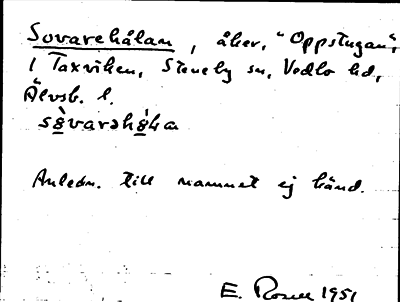 Sovarehålan, åker, "Oppstugan",
i Taxviken, Steneby sn, Vedbo hd,
Älvsb. l.
Anledn. till namnet ej känd.
E. Rosell 1951